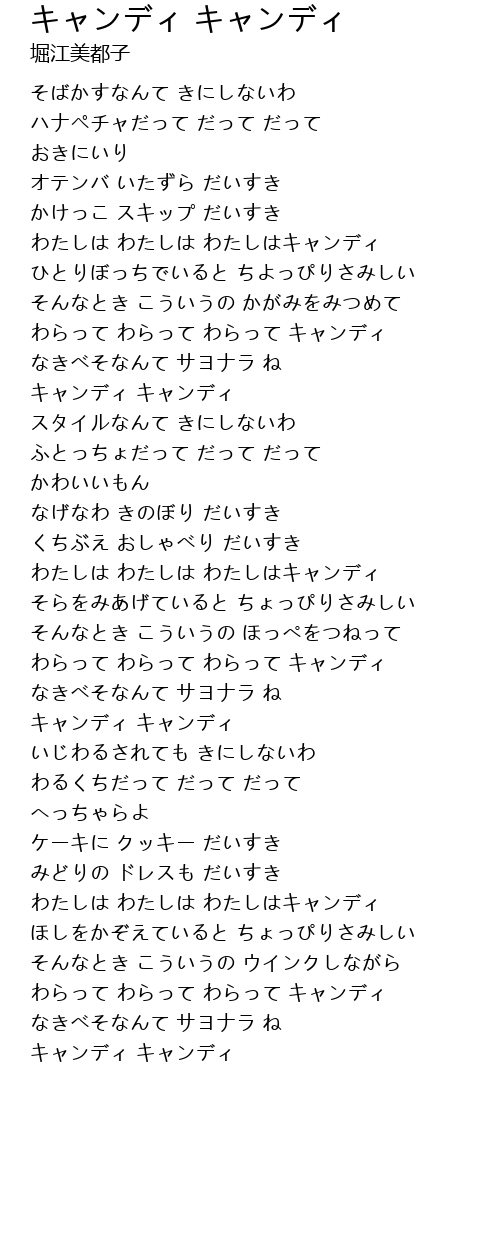 キャンディ キャンディ
堀江美都子
そばかすなんて きにしないわ
ハナペチャだって だって だって
おきにいり
オテンバ いたずら だいすき
かけっこ スキップ だいすき
わたしは わたしは わたしはキャンディ
ひとりぼっちでいると ちよっぴりさみしい
そんなとき こういうの かがみをみつめて
わらって わらって わらって キャンディ
なきべそなんて サヨナラ ね
キャンディ キャンディ
スタイルなんて きにしないわ
ふとっちょだって だって だって
かわいいもん
なげなわ きのぼり だいすき
くちぶえ おしゃべり だいすき
わたしは わたしは わたしはキャンディ
そらをみあげていると ちょっぴりさみしい
そんなとき こういうの ほっぺをつねって
わらって わらって わらって キャンディ
なきべそなんて サヨナラ ね
キャンディ キャンディ
いじわるされても きにしないわ
わるくちだって だって だって
へっちゃらよ
ケーキに クッキー だいすき
みどりの ドレスも だいすき
わたしは わたしは わたしはキャンディ
ほしをかぞえていると ちょっぴりさみしい
そんなとき こういうの ウインクしながら
わらって わらって わらって キャンディ
なきべそなんて サヨナラ ね
キャンディ キャンディ